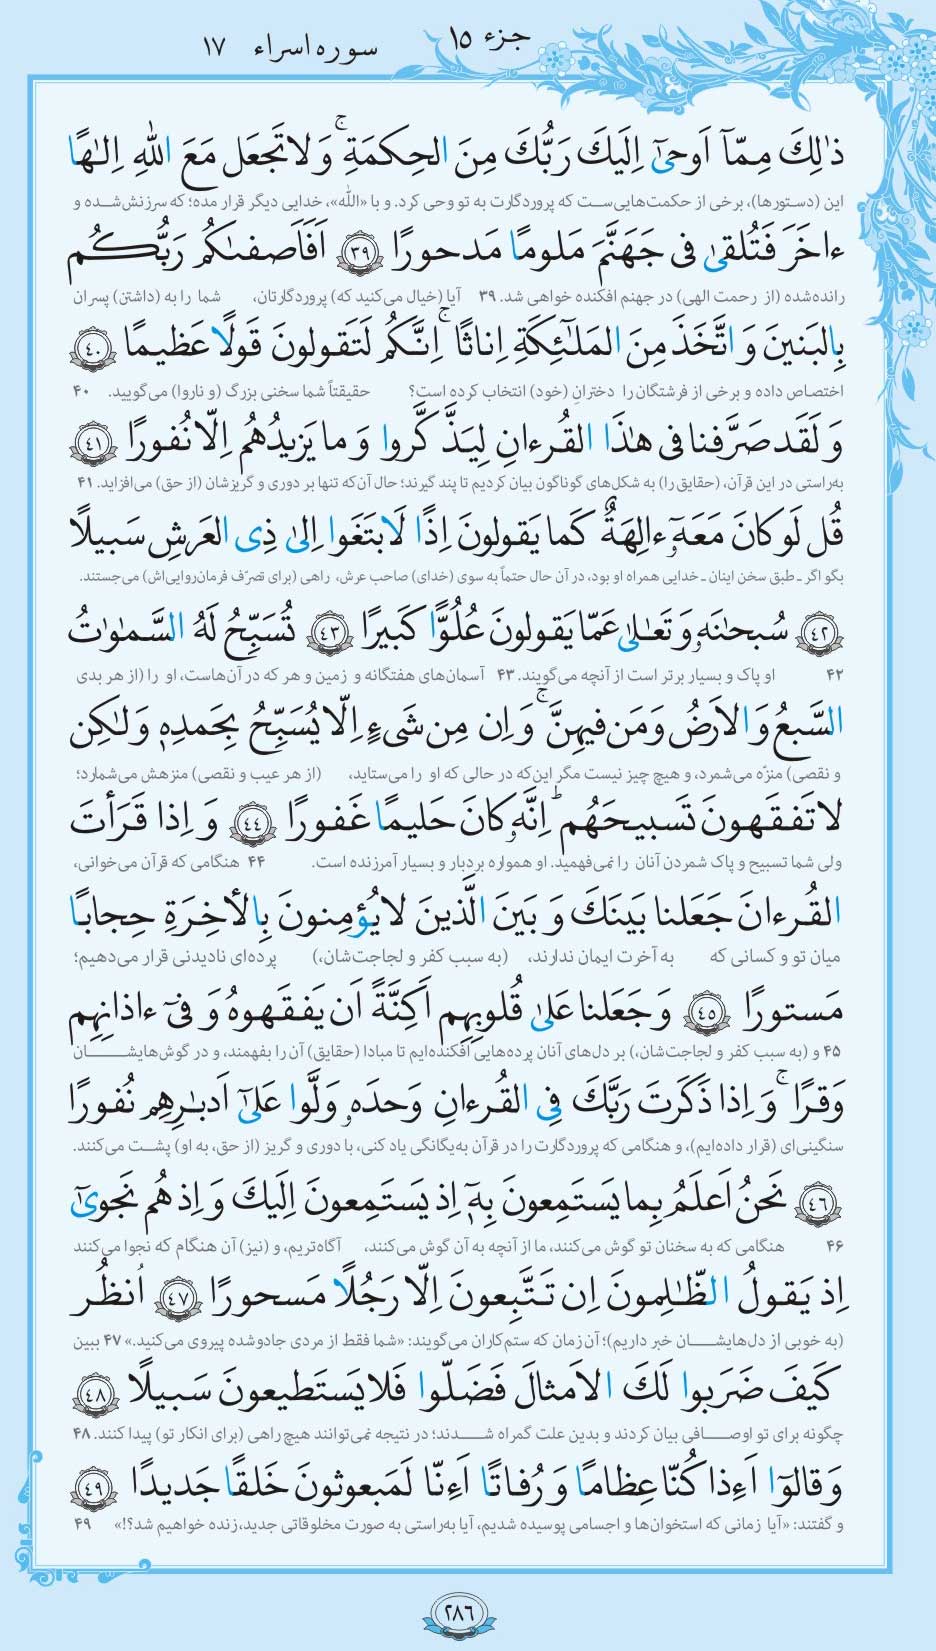 جزء ۱۵
سوره اسراء ۱۷
ذٰلِكَ مِمّآ اَوحیٰٓ اِلَيكَ رَبُّكَ مِنَ الحِكمَةِ ۚ وَ لا تَجعَل مَعَ اللّٰهِ اِلٰهًا
این (دستورها)، برخی از حکمت‌هایی‌ست که پروردگارت به تو وحی کرد. و با «اللّٰه»، خدایی دیگر قرار مده؛ که سرزنش‌شده و
ءاخَرَ فَتُلقیٰ فی جَهَنَّمَ مَلومًا مَدحورًا ﴿٣٩﴾ اَفَاَصفىٰكُم رَبُّكُم
رانده‌شده (از رحمت الهی) در جهنم افکنده خواهی شد. ۳۹ آیا (خیال می‌کنید که) پروردگارتان، شما را به (داشتن) پسران
بِالبَنينَ وَ اتَّخَذَ مِنَ المَلٰٓئِكَةِ اِناثًا ۚ اِنَّكُم لَتَقولونَ قَولًا عَظيمًا ﴿٤٠﴾
اختصاص داده و برخی از فرشتگان را دخترانِ (خود) انتخاب کرده است؟ حقیقتاً شما سخنی بزرگ (و ناروا) می‌گویید. ۴۰
وَ لَقَد صَرَّفنا فی هٰذَا القُرءانِ لِيَذَّكَّروا وَ ما يَزيدُهُم اِلّا نُفورًا ﴿٤١﴾
به‌راستی در این قرآن، (حقایق را) به شکل‌های گوناگون بیان کردیم تا پند گیرند؛ حال آن‌که تنها بر دوری و گریزشان (از حق) می‌افزاید. ۴۱
قُل لَو كانَ مَعَهٗٓ ءالِهَةٌ كَما يَقولونَ اِذًا لَابتَغَوا اِلیٰ ذِی العَرشِ سَبيلًا
بگو اگر ـ طبق سخن اینان ـ خدایی همراه او بود، در آن حال حتماً به سوی (خدای) صاحب عرش، راهی (برای تصرّف فرمان‌روایی‌اش) می‌جستند.
﴿٤٢﴾ سُبحانَهٗ وَ تَعالیٰ عَمّا يَقولونَ عُلُوًّا كَبيرًا ﴿٤٣﴾ تُسَبِّحُ لَهُ السَّمٰوٰتُ
۴۲ او پاک و بسیار برتر است از آنچه می‌گویند. ۴۳ آسمان‌های هفتگانه و زمین و هر که در آن‌هاست، او را (از هر بدی
السَّبعُ وَ الاَرضُ وَ مَن فيهِنَّ ۚ وَ اِن مِن شَیءٍ اِلّا يُسَبِّحُ بِحَمدِهٖ وَ لٰكِن
و نقصی) منزّه می‌شمرد، و هیچ چیز نیست مگر این‌که در حالی که او را می‌ستاید، (از هر عیب و نقصی) منزهش می‌شمارد؛
لا تَفقَهونَ تَسبيحَهُم ۗ اِنَّهٗ كانَ حَليمًا غَفورًا ﴿٤٤﴾ وَ اِذا قَرَأتَ
ولی شما تسبیح و پاک شمردن آنان را نمی‌فهمید. او همواره بردبار و بسیار آمرزنده است. ۴۴ هنگامی که قرآن می‌خوانی،
القُرءانَ جَعَلنا بَينَكَ وَ بَينَ الَّذينَ لا يُؤمِنونَ بِالأخِرَةِ حِجابًا
میان تو و کسانی که به آخرت ایمان ندارند، (به سبب کفر و لجاجت‌شان،) پرده‌ای نادیدنی قرار می‌دهیم؛
مَستورًا ﴿٤٥﴾ وَ جَعَلنا عَلیٰ قُلوبِهِم اَكِنَّةً اَن يَفقَهوهُ وَ فیٓ ءاذانِهِم
۴۵ و (به سبب کفر و لجاجت‌شان،) بر دل‌های آنان پرده‌هایی افکنده‌ایم تا مبادا (حقایق) آن را بفهمند، و در گوش‌هایشان
وَقرًا ۚ وَ اِذا ذَكَرتَ رَبَّكَ فِی القُرءانِ وَحدَهٗ وَلَّوا عَلیٰٓ اَدبارِهِم نُفورًا
سنگینی‌ای (قرار داده‌ایم)، و هنگامی که پروردگارت را در قرآن به‌یگانگی یاد کنی، با دوری و گریز (از حق، به او) پشت می‌کنند.
﴿٤٦﴾ نَحنُ اَعلَمُ بِما يَستَمِعونَ بِهٖٓ اِذ يَستَمِعونَ اِلَيكَ وَ اِذ هُم نَجویٰٓ
۴۶ هنگامی که به سخنان تو گوش می‌کنند، ما از آنچه به آن گوش می‌کنند، آگاه‌تریم، و (نیز) آن هنگام که نجوا می‌کنند
اِذ يَقولُ الظّٰلِمونَ اِن تَتَّبِعونَ اِلّا رَجُلًا مَسحورًا ﴿٤٧﴾ اُنظُر
(به خوبی از دل‌هایشان خبر داریم)؛ آن زمان که ستم‌کاران می‌گویند: «شما فقط از مردی جادوشده پیروی می‌کنید.» ۴۷ ببین
كَيفَ ضَرَبوا لَكَ الاَمثالَ فَضَلّوا فَلا يَستَطيعونَ سَبيلًا ﴿٤٨﴾
چگونه برای تو اوصافی بیان کردند و بدین علت گمراه شدند؛ در نتیجه نمی‌توانند هیچ راهی (برای انکار تو) پیدا کنند. ۴۸
وَ قالوٓا اَءِذا كُنّا عِظامًا وَ رُفاتًا اَءِنّا لَمَبعوثونَ خَلقًا جَديدًا ﴿٤٩﴾
و گفتند: «آیا زمانی که استخوان‌ها و اجسامی پوسیده شدیم، آیا به‌راستی به صورت مخلوقاتی جدید، زنده خواهیم شد؟!» ۴۹
۲۸۶